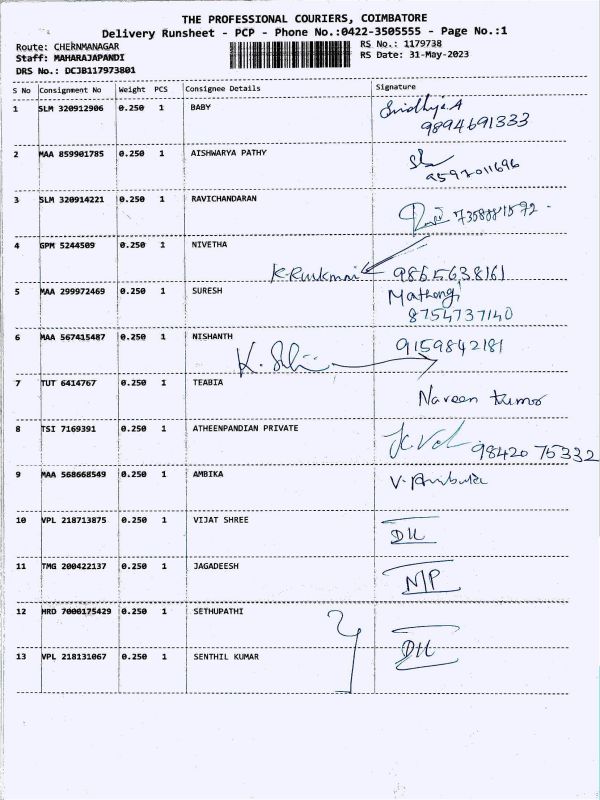 THE PROFESSIONAL COURIERS, COIMBATORE
Delivery Runsheet - PCP - Phone No.:0422-3505555 - Page No.:1
Route: CHERNMANAGAR RS No.: 1179738
Staff: MAHARAJAPANDI RS Date: 31-May-2023
DRS No.: DCJB117973801
S No Consignment No Weight PCS Consignee Details Signature
1 SLM 320912906 0.250 1 BABY Sridhya.A
9894691333
2 MAA 859901785 0.250 1 AISHWARYA PATHY
9597011696
3 SLM 320914221 0.250 1 RAVICHANDARAN
4 GPM 5244509 0.250 1 NIVETHA
K.Rukmni 9865638161
5 MAA 299972469 0.250 1 SURESH Mathangi
8754737140
6 MAA 567415487 0.250 1 NISHANTH 9159842181
7 TUT 6414767 0.250 1 TEABIA
Naveen kumar
8 TSI 7169391 0.250 1 ATHEENPANDIAN PRIVATE
9842075332
9 MAA 568668549 0.250 1 AMBIKA
10 VPL 218713875 0.250 1 VIJAT SHREE
DLL
11 TMG 200422137 0.250 1 JAGADEESH
N/P
12 MRD 7000175429 0.250 1 SETHUPATHI
13 VPL 218131067 0.250 1 SENTHIL KUMAR DLL